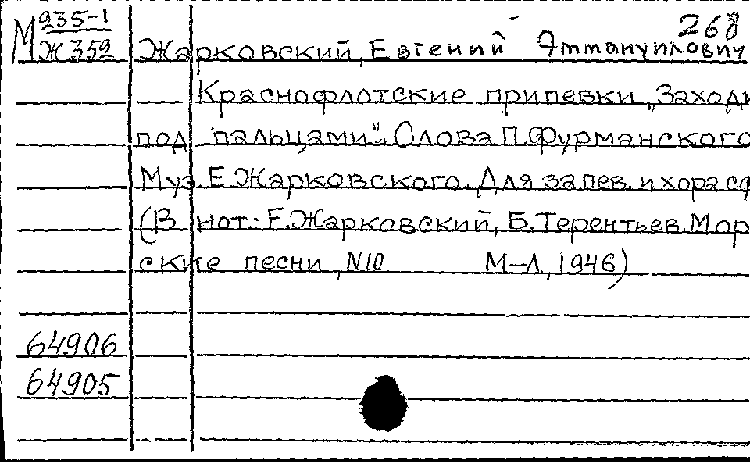 М 235-1 268
Ж 359 Жарковский, Евгений Эммануилович
Краснофлотские припевки „Заходи
под пальцами". Слова П. Фурманского
Муз. Е. Жарковского. Для запев. и хора с ф
(В нот.: Е. Жарковский, Б. Терентьев. Мор
ские песни, N10 М-Л, 1946)
64906
64905